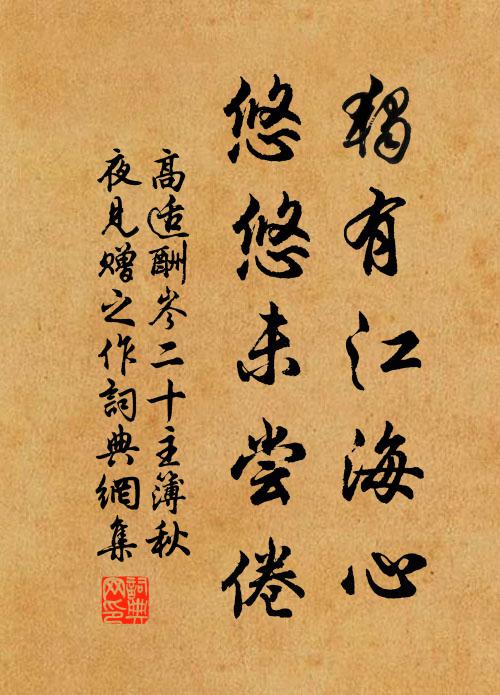 獨有江海心
悠悠未嘗倦
高适酬岑二十主簿秋
夜見贈之作詞典網集
詞典
网印